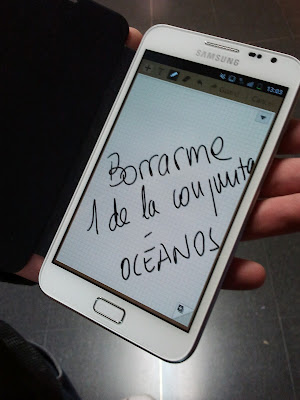 SAMSUNG
13:03
Borrarme
1 de la conjunta
-
OCÉANOS